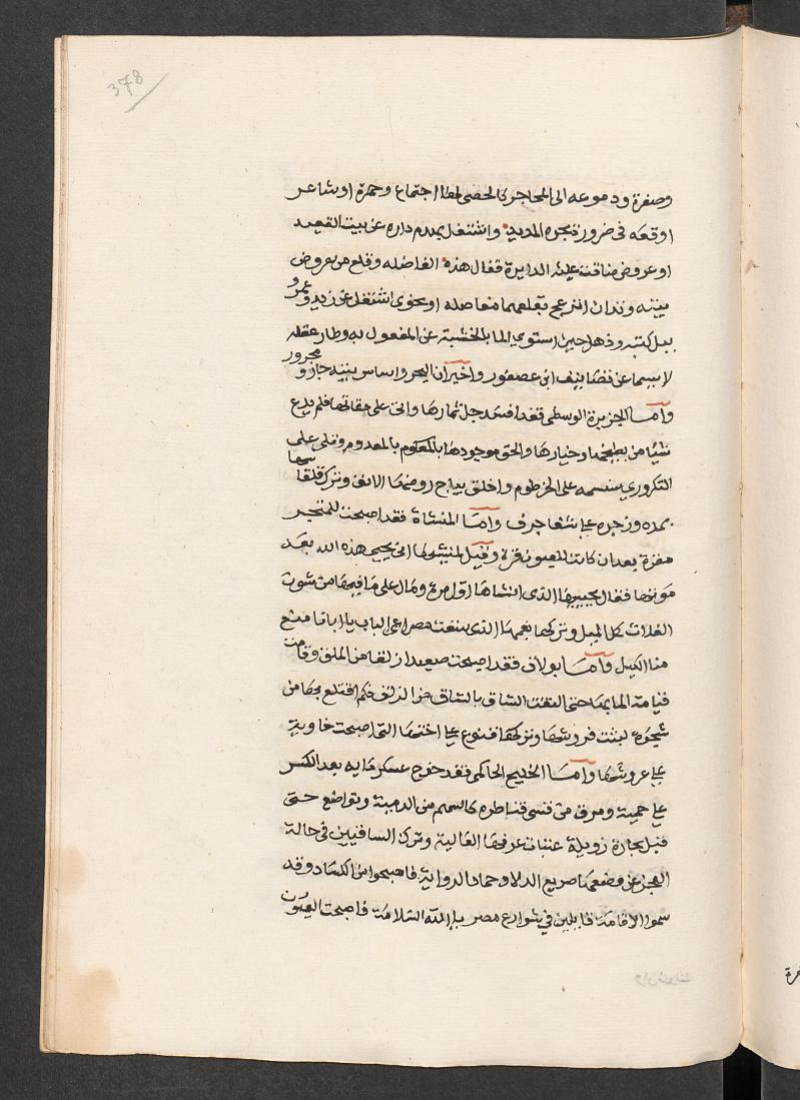 378
وصفرة ودموعه الى المحاجر كالحصى لها اجتماع وحمرة او شاعر
اوقعه فى ضرورة بحره المديد واشتغل بهدم داره عن بيت القصيد
او عروضى ضاقت عليه الدايرة فقال هذه الفاصله وقلع من عروض
بيته وتدان انزعج بقلعهما مفاصله او نحوى اشتغل عن زيد وعمرو
ببل كتبه وذهل حين استوى الما بالخشبة عن المفعول به وطار عقله
لاسيما عن تصانيف ابن عصفور واخبران البحر واساس بنيه جار ومجرور
وامـا الجزيرة الوسطى فقد افسد جل ثمارها واتى على مقاتها فلم يدع
شيئا من بطيخها وخيارها والحق موجودها بالمعدوم وتلى على
التكرورى سنسمه على الخرطوم واخلق ديباج روضها الانف وترك قلقاسها
بمده وزجره على شفا جرف وامـا المنشاة فقد اصبحت للمتجر
مقزة بعد ان كانت للعيون قرة وقيل لمنيشها انى يحيى هذه الله بعد
موتها فقال يحييها الذى انشاها اول مرة ومال على ما فيها من شون
الغلات كل الميل وتركها تعمها الذى بنعت مصر اعى الباب يا ابانا منع
منا الكيل وامـا بولاق فقد اصبحت صعيدا زلقا من الملق وقامت
قيامة الما بها حتى التفت الساق بالساق من الزلق فكم اقتلع بها من
شجرة لبثت فروشها وترك قفا فنوع على اختها التى اصبحت خاوية
على عروشها وامـا الخليج الحاكمى فقد خرج عسكر مايه بعد الكسر
على حمية ومرق من قسى قناطره كالسهم من الرمية وتواضع حتى
قبل بحارة زويلة عتبات غرفها العالية وترك السافيين فى حالة
العجز عن وضعها صريع الدلا وحماد الراوية فاصبحوا من الكساد وقد
سموا الاقامة قايلين فى شوارع مصر يا الله السلامة فاصبحت العيون